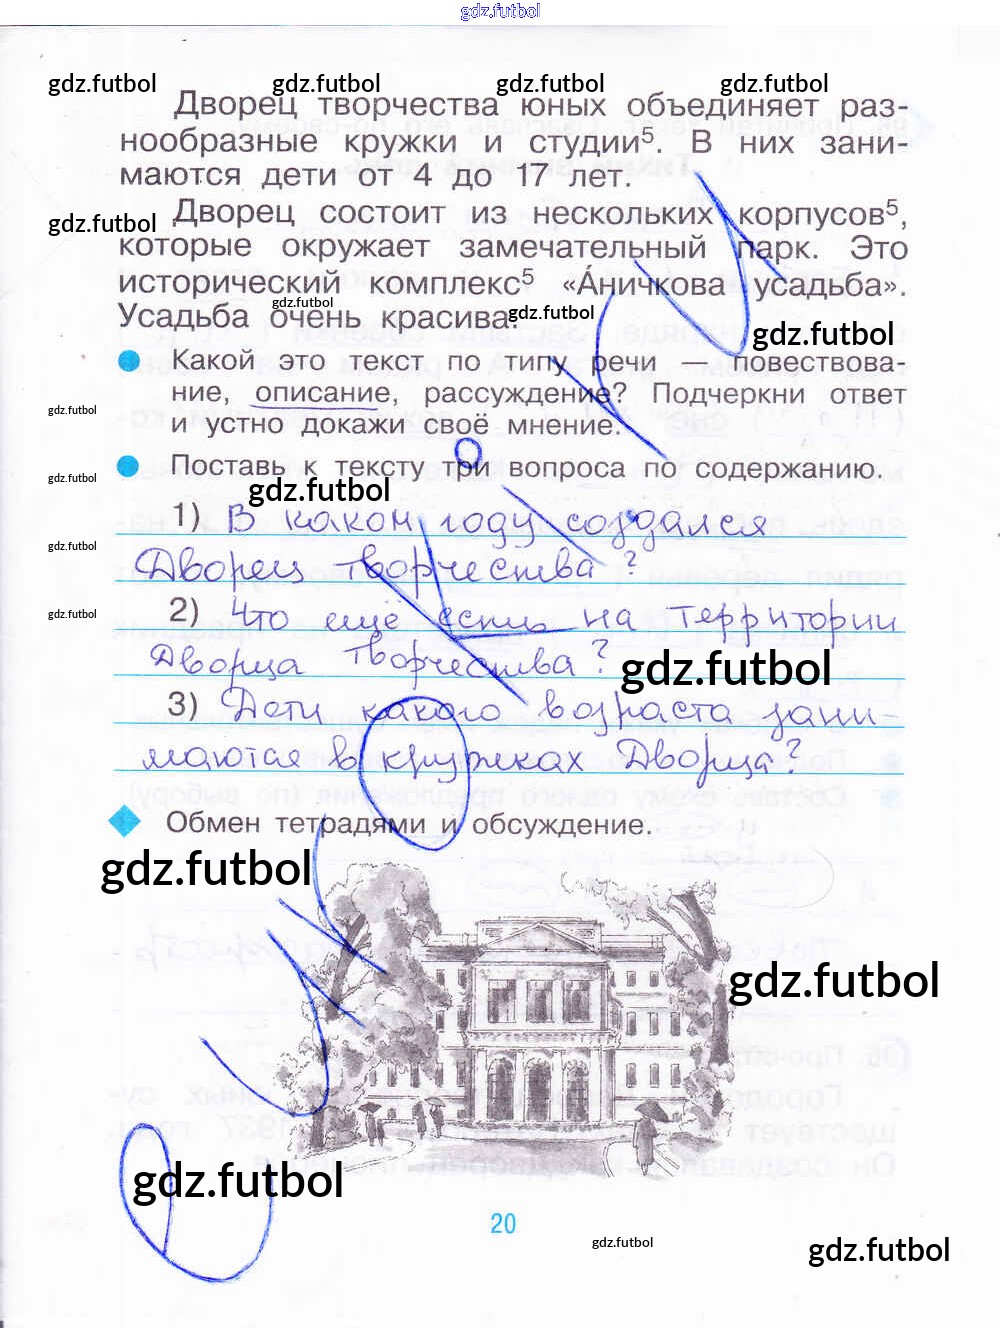 gdz.futbol
gdz.futbol gdz.futbol gdz.futbol gdz.futbol
Дворец творчества юных объединяет раз-
нообразные кружки и студии⁵. В них зани-
маются дети от 4 до 17 лет.
Дворец состоит из нескольких корпусов⁵,
gdz.futbol
которые окружает замечательный парк. Это
исторический комплекс⁵ «А́ничкова усадьба».
gdz.futbol
Усадьба очень красива.
gdz.futbol
gdz.futbol
Какой это текст по типу речи — повествова-
ние, описание, рассуждение? Подчеркни ответ
gdz.futbol
и устно докажи своё мнение.
Поставь к тексту три вопроса по содержанию.
gdz.futbol
gdz.futbol
1) В каком году создался
gdz.futbol
Дворец творчества?
2) Что ещё есть на территории
gdz.futbol
Дворца творчества?
gdz.futbol
3) Дети какого возраста зани-
маются в кружках Дворца?
Обмен тетрадями и обсуждение.
gdz.futbol
gdz.futbol
gdz.futbol
20
gdz.futbol
gdz.futbol